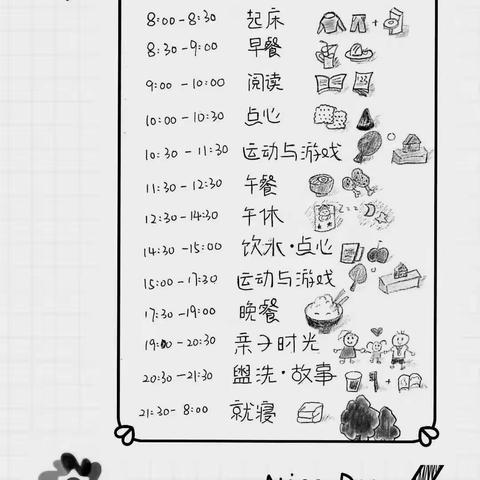 8:00-8:30 起床
8:30-9:00 早餐
9:00-10:00 阅读
10:00-10:30 点心
10:30-11:30 运动与游戏
11:30-12:30 午餐
12:30-14:30 午休
14:30-15:00 饮水·点心
15:00-17:30 运动与游戏
17:30-19:00 晚餐
19:00-20:30 亲子时光
20:30-21:30 盥洗·故事
21:30-8:00 就寝